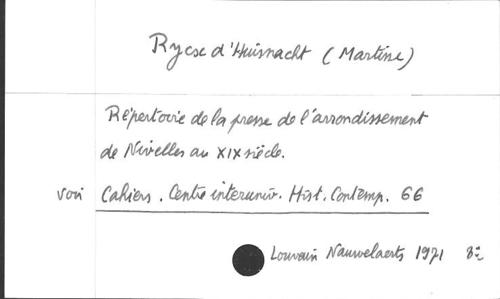 Rycx d'Huisnacht (Martine)
Répertoire de la presse de l'arrondissement
de Nivelles au XIX siècle.
voir Cahiers. Centre interuniv. Hist. Contemp. 66
Louvain Nauwelaerts 1971 8°